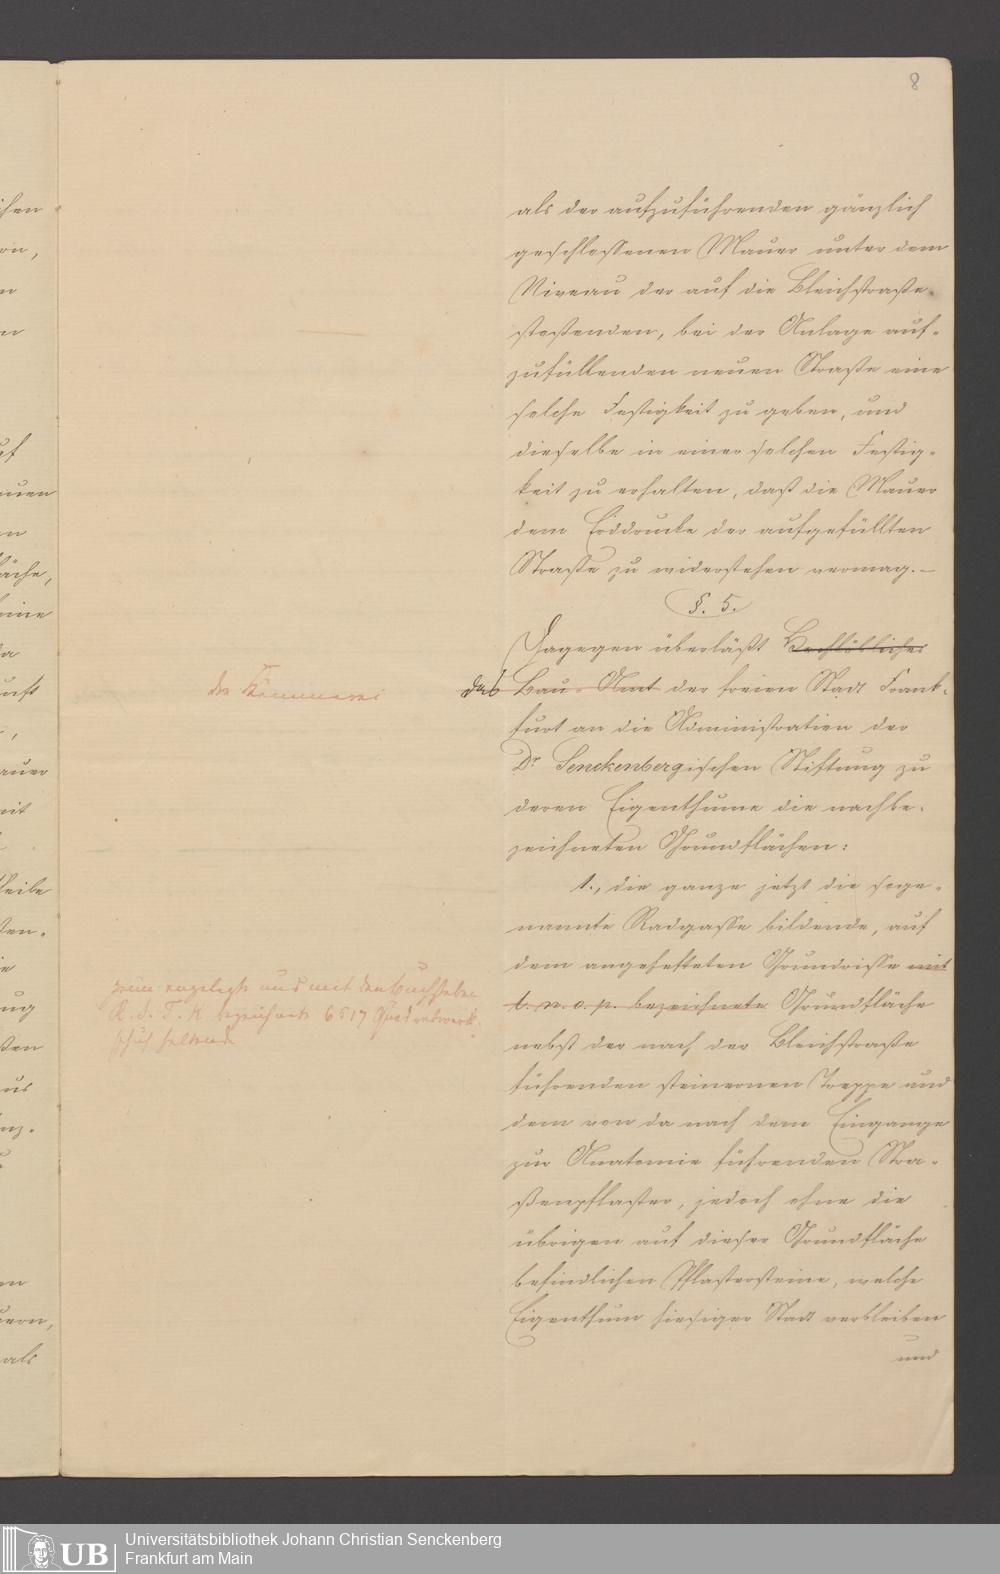 8
als der aufzuführenden gänzlich
geschlossenen Mauer unter dem
Niveau der auf die Bleichstraße
stoßenden, bei der Anlage auf-
zufüllenden neuen Straße eine
solche Festigkeit zu geben, und
dieselbe in einer solchen Festig-
keit zu erhalten, daß die Mauer
dem Erddrucke der aufgefüllten
Straße zu widerstehen vermag. –
§. 5.
Dagegen überläßt Hochlöbliches
das Bau-Amt der freien Stadt Frank-
furt an die Administration der
Dr Senckenbergischen Stiftung zu
deren Eigenthume die nachbe-
zeichneten Grundflächen:
1., die ganze jetzt die soge-
nannte Radgasse bildende, auf
dem angehefteten Grundrisse mit
l. m. o. p. bezeichnete Grundfläche
nebst der nach der Bleichstraße
führenden steinernen Treppe und
dem von da nach dem Eingange
zur Anatomie führenden Stra-
ßenpflaster, jedoch ohne die
übrigen auf dieser Grundfläche
befindlichen Pflastersteine, welche
Eigenthum hiesiger Stadt verbleiben
und
die Kämmerei
grün angelegte und mit den Buchstaben
J. K bezeichnete 6517 Quadratwerk-
schuh haltende
Universitätsbibliothek Johann Christian Senckenberg
Frankfurt am Main
UB